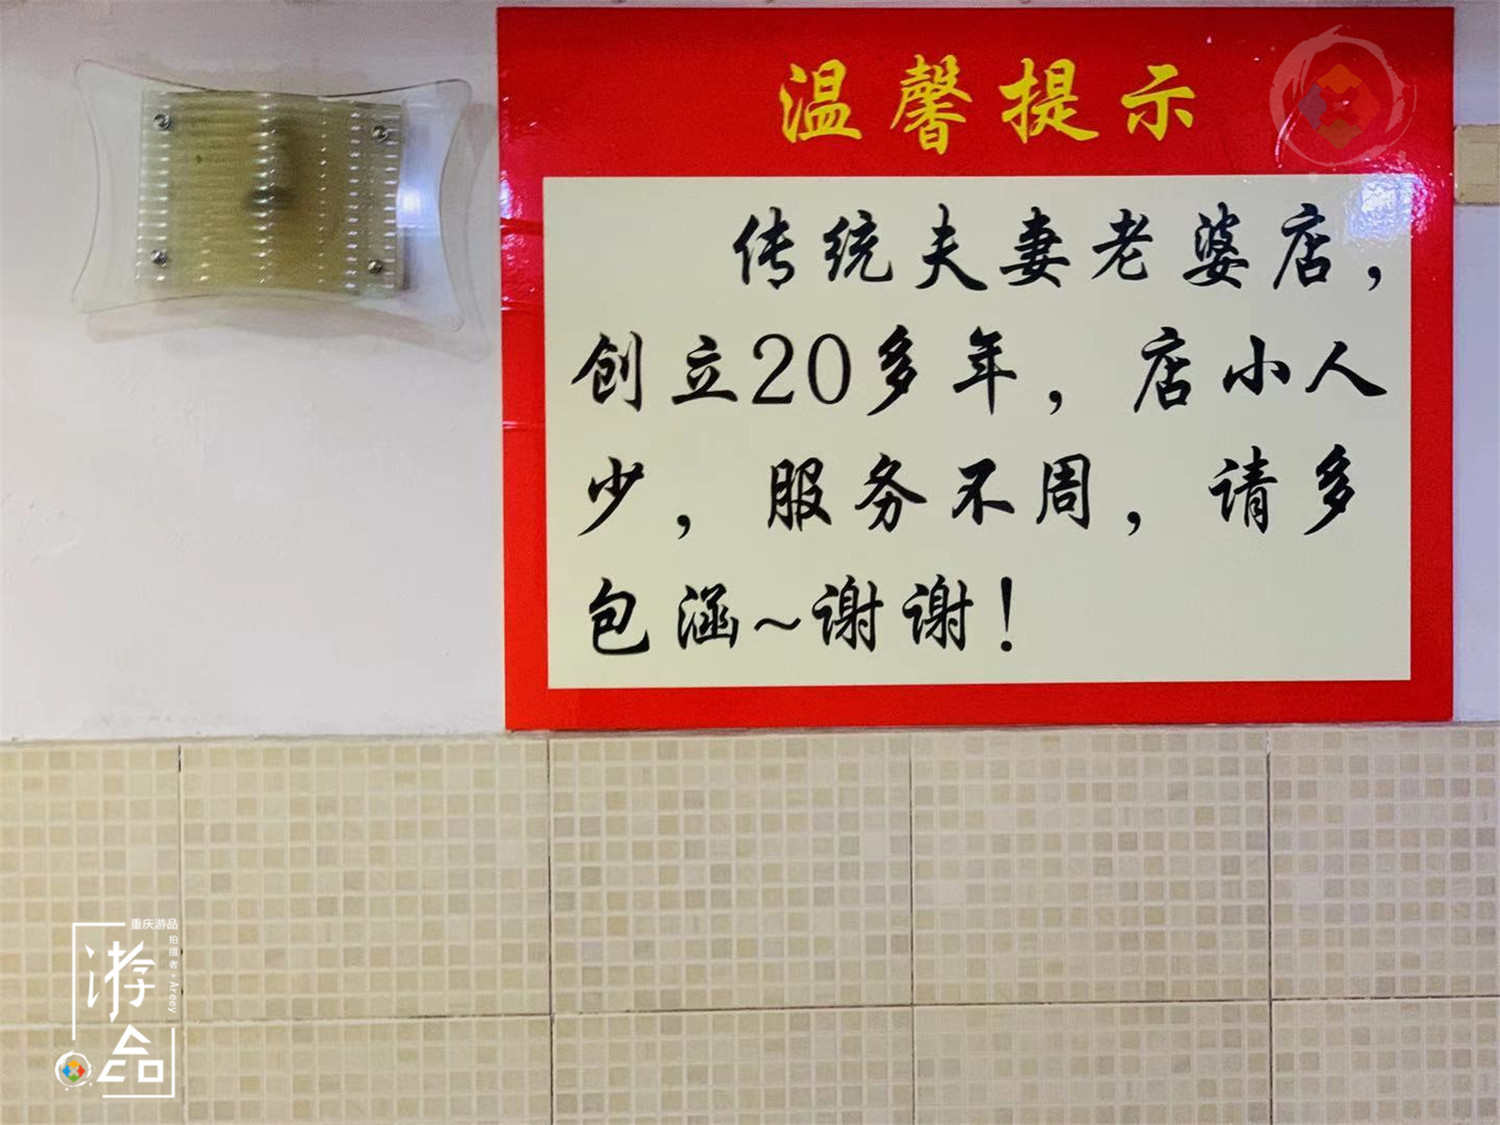 温馨提示
传统夫妻老婆店，
创立20多年，店小人
少，服务不周，请多
包涵~谢谢！
重庆游品
游品
拍摄者·Areey